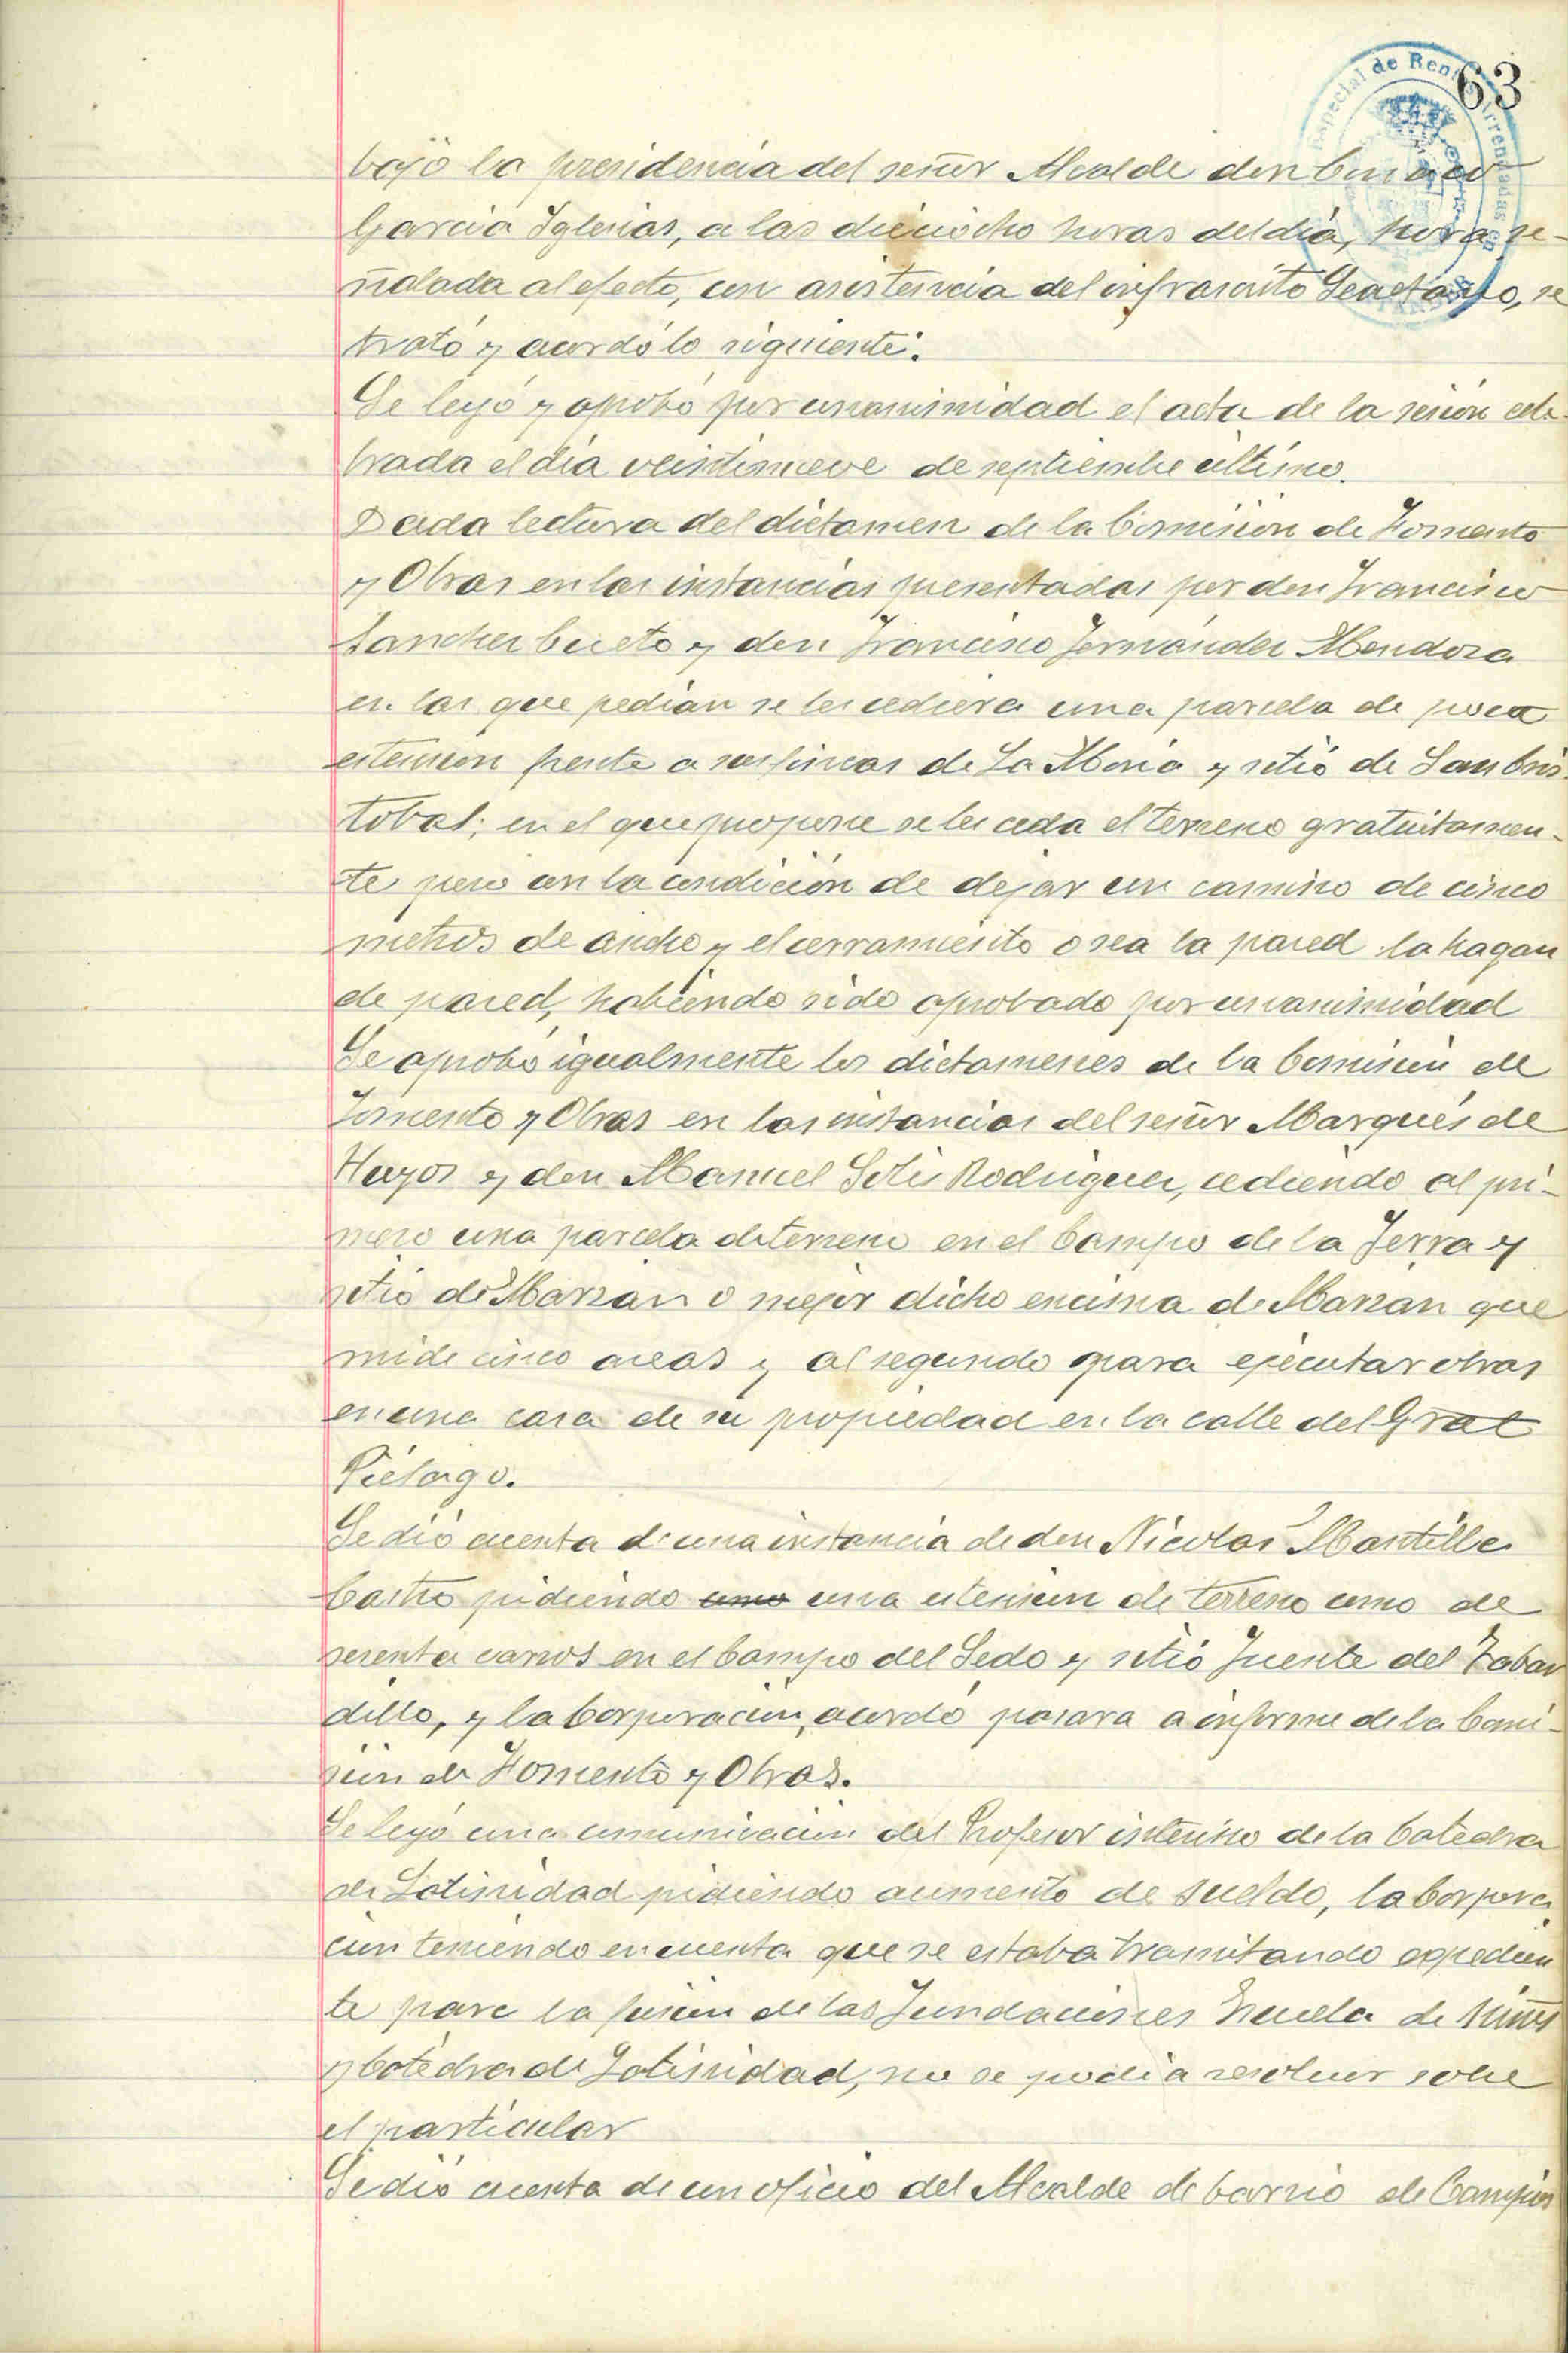 63
Especial de Rentas Arrendadas
bajo la presidencia del señor Alcalde don
Garcia Iglesias, a las dieciocho horas del dia, hora se-
ñalada al efecto, con asistencia del infrascrito Secretario, se
trató y acordó lo siguiente:
Se leyó y aprobó por unanimidad el acta de la sesión cele-
brada el dia veintinueve de septiembre último.
Dada lectura del dictamen de la Comisión de Fomento
y Obras en las instancias presentadas por don Francisco
Sanchez Cueto y don Francisco Fernández Mendoza
en las que pedian se les cediera una parcela de poca
estensión frente a sus fincas de La Maria y sitio de San Cris-
tobal; en el que propone se les ceda el terreno gratuitamen-
te pero con la condición de dejar un camino de cinco
metros de ancho y el cerramiento o sea la pared la hagan
de pared, habiendo sido aprobado por unanimidad
Se aprobó igualmente los dictamenes de la Comisión de
Fomento y Obras en las instancias del señor Marqués de
Hazas y don Manuel Solis Rodriguez, cediendo al pri-
mero una parcela de terreno en el Campo de la Ferra y
sitio de Marzan o mejor dicho encima de Marzan que
mide cinco areas y al segundo para ejecutar obras
en una casa de su propiedad en la calle del Gral
Piélago.
Se dió cuenta de una instancia de don Nicolas Mantilla
Castro pidiendo como una estension de terreno como de
sesenta carros en el Campo del Sedo y sitio Fuente del Tabar
dillo, y la Corporación, acordó pasara a informe de la Comi-
sión de Fomento y Obras.
Se leyó una comunicación del Profesor interino de la Catedra
de Latinidad pidiendo aumento de sueldo, la Corpora
cion teniendo en cuenta que se estaba tramitando expedien
te para la fusion de las Fundaciones Escuela de Niños
y Catedra de Latinidad, no se podia resolver sobre
el particular
Se dió cuenta de un oficio del Alcalde de barrio de